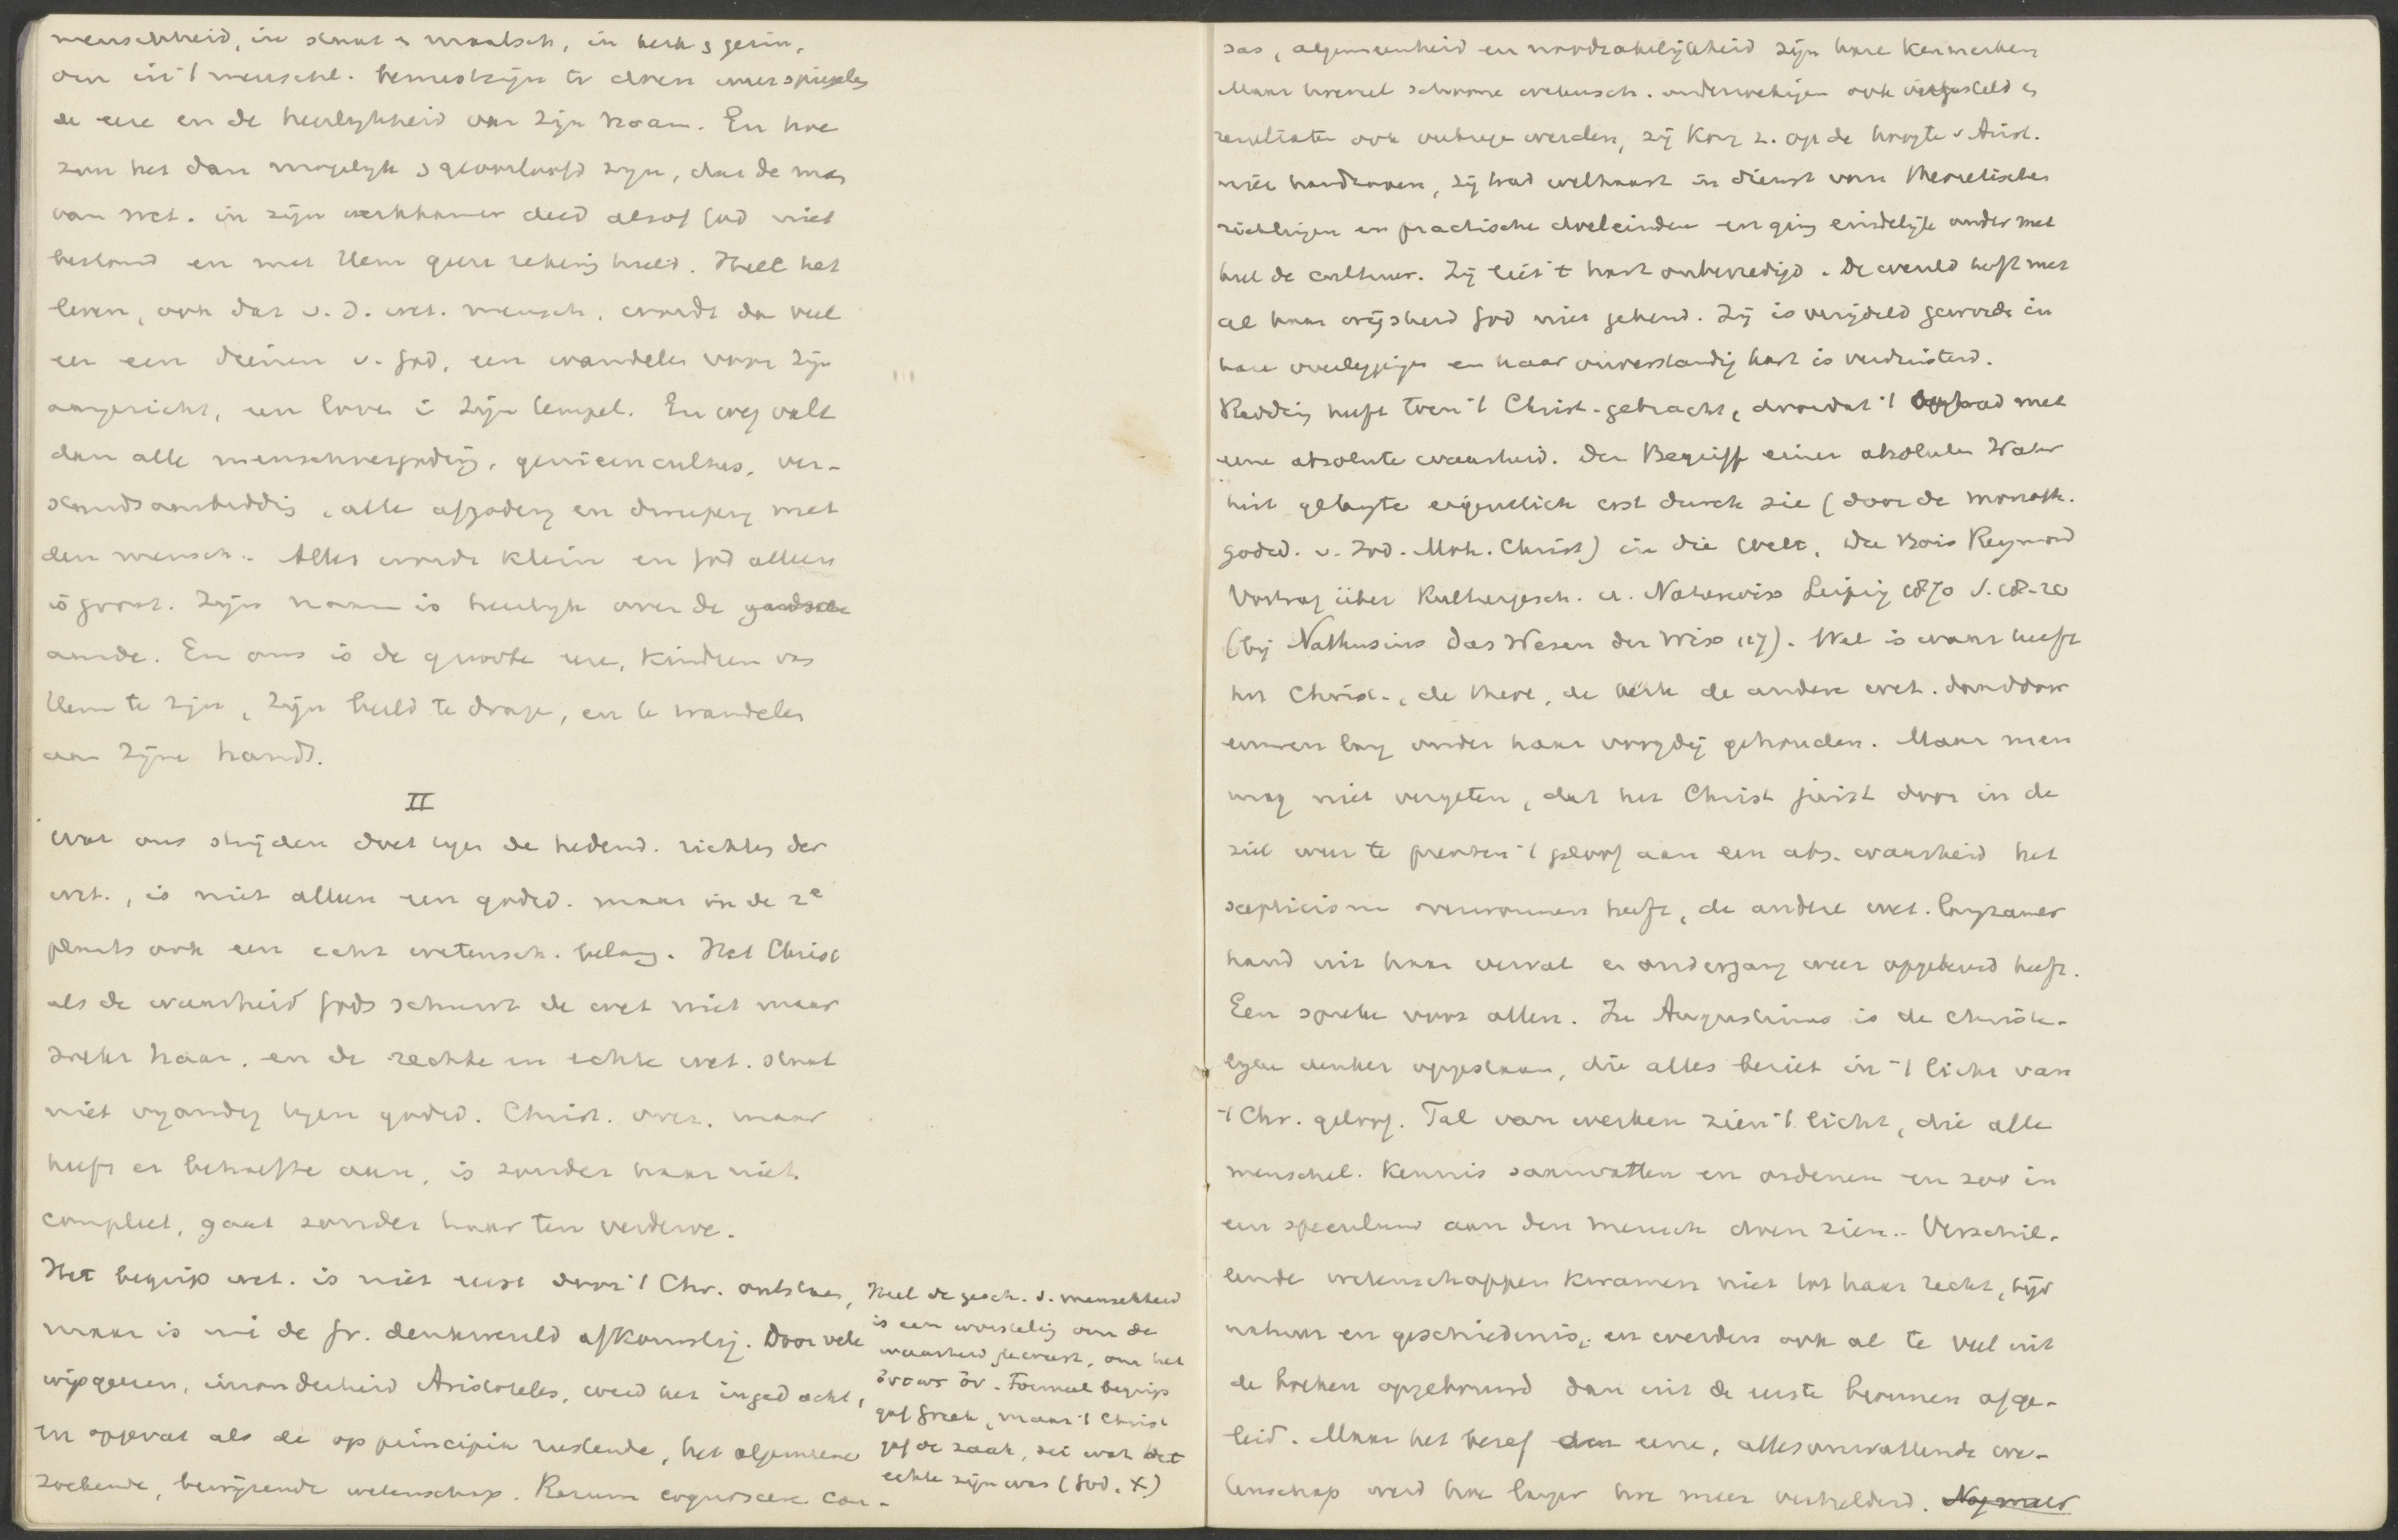 menschheid, in staat & maatsch, in kerk & gezin,
om in 't menschl. bewustzijn te doen weerspiegelen
de eere en de heerlijkheid van Zijn Naam. En hoe
zou het dan mogelijk & geoorloofd zijn, dat de man
van Wet. in zijn werkkamer deed alsof God niet
bestond en met Hem geen rekening hield. Heel het
leven, ook dat v. d. wet. mensch, wordt dan veel
eer een dienen v. God, een wandelen voor Zijn
aangezicht, een loven i Zijn tempel. En weg valt
dan alle menschvergoding, genieencultus, ver-
standsaanbidding, alle afgoderij en dweeperij met
den mensch. Alles worde klein en God alleen
is groot. Zijn naam is heerlijk over de gandsche
aarde. En ons is de groote eere, kindren van
Hem te zijn, Zijn beeld te dragen, en te wandelen
aan Zijne hand.
II
Wat ons strijden doet tegen de hedend. richting der
wet., is niet alleen een godsd. maar in de 2e
plaats ook een echt wetensch. belang. Het Christ
als de waarheid Gods schuwt de wet niet maar
zoekt haar, en de rechte en echte wet. staat
niet vijandig tegen godsd. Christ. over. maar
heeft er behoefte aan, is zonder haar niet
compleet, gaat zonder haar ten verderve.
Het begrip wet. is niet eerst door 't Chr. ontstaan,
maar is uit de Gr. denkwereld afkomstig. Door vele
wijsgeeren, inzonderheid Aristoteles, werd het ingedacht,
en opgevat als de op principia rustende, het algemeene
zoekende, bewijzende wetenschap. Rerum cognoscere cau-
Heel de gesch. d. menschheid
is een worsteling om de
waarheid geweest, om het
ὄντως ὄν. Formeel begrip
gaf Griek, maar 't Christ
gaf de zaak, zei wat het
echte zijn was (God, X)
sas, algemeenheid en noodzakelijkheid zijn hare kenmerken
Maar hoeveel schoone wetensch. onderzoekingen ook ingesteld &
resultaten ook verkregen werden, zij kon z. op de hoogte v Arist.
niet handhaven, zij trad weldra in dienst van theoretische
richtingen en practische doeleinden en ging eindelijk onder met
heel de cultuur. Zij liet 't hart onbevredigd. De wereld heeft met
al haar wijsheid God niet gekend. Zij is verijdeld geworden in
hare overleggingen en haar onverstandig hart is verduisterd.
Redding heeft toen 't Christ. gebracht, doordat 't optrad met
eene absolute waarheid. Der Begriff einer absoluten Wahr
heit gelangte eigentlich erst durch sie (door de monoth.
godsd. v. Jod. Moh. Christ) in die Welt, Du Bois Reymond
Vortrag über Kulturgesch. u. Naturwiss Leipzig 1870 S. 18-20
(bij Nathusius Das Wesen der Wiss 117). Wel is waar heeft
het Christ., de theol, de kerk de andere wet. daardoor
eeuwen lang onder haar voogdij gehouden. Maar men
mag niet vergeten, dat het Christ juist door in de
ziel weer te prenten 't geloof aan een abs. waarheid het
scepticisme overwonnen heeft, de andere wet. langzamer
hand uit haar verval en ondergang weer opgebeurd heeft.
Een sprekt voor allen. In Augustinus is de christe-
lijke denker opgestaan, die alles beziet in 't licht van
't Chr. geloof. Tal van werken zien 't licht, die alle
menschel. kennis samenvatten en ordenen en zoo in
een speculum aan den mensch doen zien. Verschil-
lende wetenschappen kwamen niet tot haar recht, bijv
natuur en geschiedenis, en werden ook al te veel uit
de boeken opgebouwd dan uit de eerste bronnen afge-
leid. Maar het besef der eene, allesomvattende we-
tenschap werd hoe langer hoe meer verhelderd. Nog meer